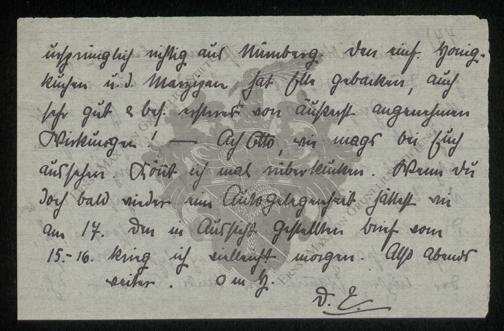 ursprünglich richtig aus Nürnberg. Den einf. Honig-
kuchen u. d. Marzipan hat Elli gebacken, auch
sehr gut & bes. ersterer von äußerst angenehmen
Wirkungen! — Ach Otto, wie mags bei Euch
aussehen. Könnt ich mal rüberkucken. Wenn du
doch bald wieder eine Autogelegenheit hättest wie
am 17. Den in Aussicht gestellten Brief vom
15.-16. krieg ich vielleicht morgen. Also Abends
weiter. o m. H.
D. E.